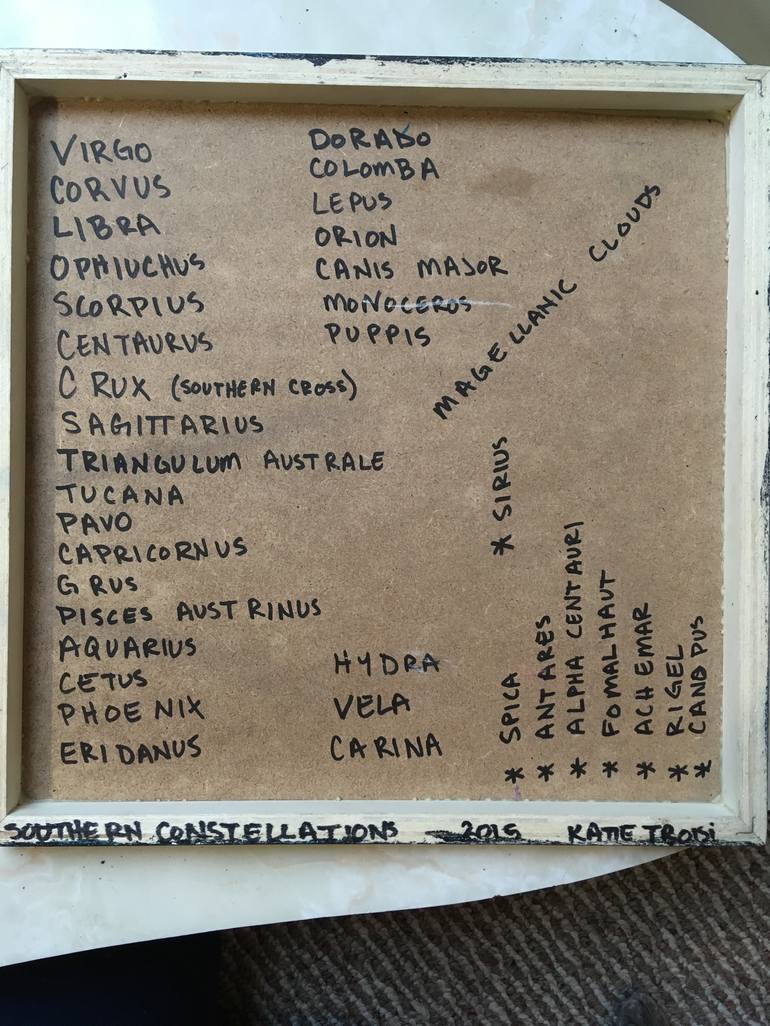 VIRGO
CORVUS
LIBRA
OPHIUCHUS
SCORPIUS
CENTAURUS
CRUX (SOUTHERN CROSS)
SAGITTARIUS
TRIANGULUM AUSTRALE
TUCANA
PAVO
CAPRICORNUS
GRUS
PISCES AUSTRINUS
AQUARIUS
CETUS
PHOENIX
ERIDANUS
DORADO
COLOMBA
LEPUS
ORION
CANIS MAJOR
MONOCEROS
PUPPIS
HYDRA
VELA
CARINA
MAGELLANIC CLOUDS
* SIRIUS
* SPICA
* ANTARES
* ALPHA CENTAURI
* FOMALHAUT
* ACHEMAR
* RIGEL
* CANOPUS
SOUTHERN CONSTELLATIONS - 2015 KATIE